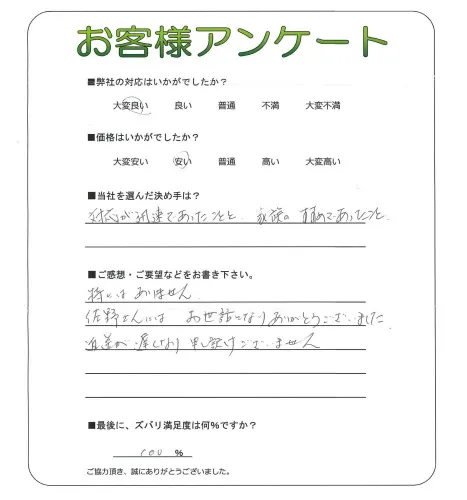 お客様アンケート
■弊社の対応はいかがでしたか？
大変良い 良い 普通 不満 大変不満
■価格はいかがでしたか？
大変安い 安い 普通 高い 大変高い
■当社を選んだ決め手は？
対応が迅速であったことと、家族の すすめであったこと、
■ご感想・ご要望などをお書き下さい。
特にはありません
佐野さんには お世話になりありがとうございました
返差が 遅くなり 申し訳ございません
■最後に、ズバリ満足度は何%ですか？
100 %
ご協力頂き、誠にありがとうございました。